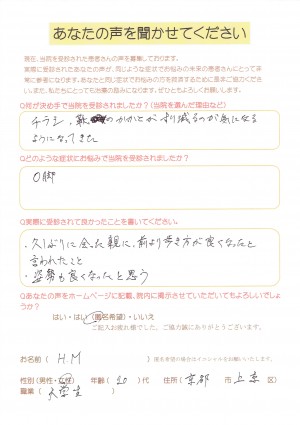 あなたの声を聞かせてください
現在、当院を受診された患者さんの声を募集しております。
実際に受診されたあなたの声が、同じような症状でお悩みの未来の患者さんにとって非
常に参考になります。あなたと同じ症状でお悩みの方を救済するために是非ご協力くださ
い。また、私たちにとっても治療の励みになります。ぜひともよろしくお願いします。
Q何が決め手で当院を受診されましたか？(当院を選んだ理由など)
チラシ、靴のかかとがすり減るのが気になる
ようになってきた
Qどのような症状にお悩みで当院を受診されましたか？
O脚
Q実際に受診されて良かったことを書いてください。
・久しぶりに会った親に、前より歩き方が良くなったと
言われたこと
・姿勢も良くなったと思う
Qあなたの声をホームページに記載、院内に掲示させていただいてもよろしいでしょ
うか？
はい・はい(匿名希望)・いいえ
ご記入お疲れ様でした。ご協力誠にありがとうございます。
お名前(H.M)
匿名希望の場合はイニシャルをお願いいたします。
性別(男性・女性) 年齢(20)代 住所(京都 市 上京 区)
職業(大学生)